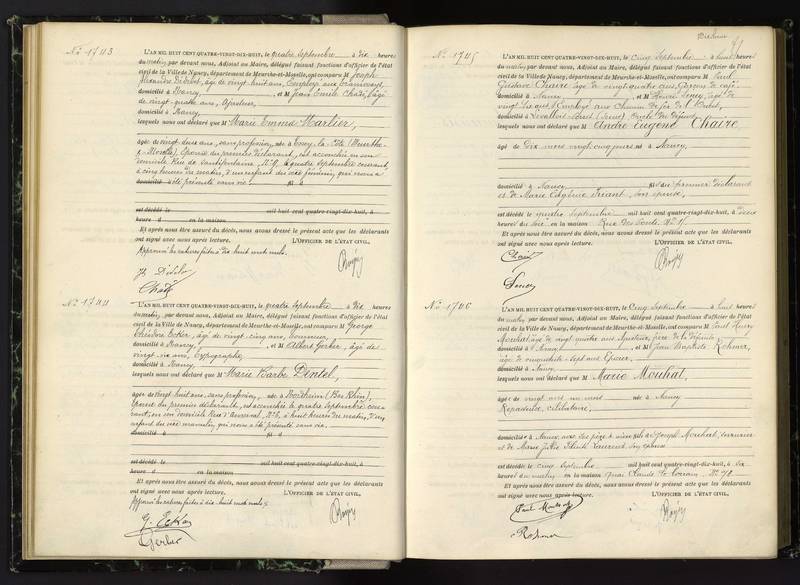 Nº 1743
L'AN MIL HUIT CENT QUATRE-VINGT-DIX-HUIT, le quatre Septembre à dix heures
du matin, par devant nous, Adjoint au Maire, délégué faisant fonctions d'officier de l'état
civil de la Ville de Nancy, département de Meurthe-et-Moselle, ont comparu M Joseph
âgé de vingt huit ans, Employé aux Tramways,
domicilié à Nancy, et M Jean Emile Chadé, âgé
de vingt quatre ans,
domicilié à Nancy,
lesquels nous ont déclaré que M Marie Emma Martier,
âgée de vingt deux ans, sans profession, née à (Meurthe-
& Moselle), Epouse du premier déclarant, est accouchée en son
domicile Rue de Santifontaine, Nº 9, le quatre Septembre courant,
à cinq heures du matin, d'un enfant du sexe féminin, qui nous a
domicilié à été présenté sans vie. fil d
est décédé le mil huit cent quatre-vingt-dix-huit, à
heure d en la maison
Et après nous être assuré du décès, nous avons dressé le présent acte que les déclarants
ont signé avec nous après lecture. L'OFFICIER DE L'ÉTAT CIVIL,
dix huit mots nuls.
Chadé
Nº 1744
L'AN MIL HUIT CENT QUATRE-VINGT-DIX-HUIT, le quatre Septembre à dix heures
du matin, par devant nous, Adjoint au Maire, délégué faisant fonctions d'officier de l'état
civil de la Ville de Nancy, département de Meurthe-et-Moselle, ont comparu M George
Ecker, âgé de vingt cinq ans,
domicilié à Nancy, et M Albert Gerber, âgé de
vingt six ans, Typographe,
domicilié à Nancy,
lesquels nous ont déclaré que M Marie Barbe Dintel,
âgée de vingt huit ans, sans profession, née à (Bas Rhin),
épouse du premier déclarant, est accouchée le quatre Septembre cou-
rant, en son domicile Rue d'Auxonne, Nº 6, à huit heures du matin, d'un
enfant du sexe masculin, qui nous a été présenté sans vie.
domicilié à fil d
est décédé le mil huit cent quatre-vingt-dix-huit, à
heure d en la maison
Et après nous être assuré du décès, nous avons dressé le présent acte que les déclarants
ont signé avec nous après lecture. L'OFFICIER DE L'ÉTAT CIVIL,
dix huit mots nuls.
G. Ecker
Gerber
Nº 1745
L'AN MIL HUIT CENT QUATRE-VINGT-DIX-HUIT, le cinq Septembre à huit heures
du matin, par devant nous, Adjoint au Maire, délégué faisant fonctions d'officier de l'état
civil de la Ville de Nancy, département de Meurthe-et-Moselle, ont comparu M Paul
Gustave Chaire, âgé de vingt quatre ans, Garçon de café
domicilié à Nancy, et M Henri âgé de
vingt six ans, Employé aux Chemin de fer de l'Ouest,
domicilié à Levallois Perret (Seine) Oncle du défunt,
lesquels nous ont déclaré que M André Eugène Chaire,
âgé de Dix mois vingt cinq jours né à Nancy,
domicilié à Nancy, fils du premier déclarant
et de Marie Eugénie Friant, son épouse,
est décédé le quatre Septembre mil huit cent quatre-vingt-dix-huit, à deux
heures du soir en la maison Rue des Ponts Nº
Et après nous être assuré du décès, nous avons dressé le présent acte que les déclarants
ont signé avec nous après lecture. L'OFFICIER DE L'ÉTAT CIVIL,
Chaire
Nº 1746
L'AN MIL HUIT CENT QUATRE-VINGT-DIX-HUIT, le Cinq Septembre à huit heures
du matin, par devant nous, Adjoint au Maire, délégué faisant fonctions d'officier de l'état
civil de la Ville de Nancy, département de Meurthe-et-Moselle, ont comparu M Paul Henry
Mouhat, âgé de vingt quatre ans frère de la défunte
domicilié à Nancy, et M Jean Baptiste Rohmer,
âgé de cinquante sept ans
domicilié à Nancy,
lesquels nous ont déclaré que M Marie Mouhat,
âgée de vingt ans un mois née à Nancy
Repasseuse, célibataire,
domiciliée à Nancy avec ses père & mère fille de Joseph Mouhat,
et de Marie Julie Laurent son épouse
est décédée le cinq Septembre mil huit cent quatre-vingt-dix-huit, à six
heures du matin en la maison quai Claude le Lorrain, Nº 78
Et après nous être assuré du décès, nous avons dressé le présent acte que les déclarants
ont signé avec nous après lecture. L'OFFICIER DE L'ÉTAT CIVIL,
Paul Mouhat
Rohmer